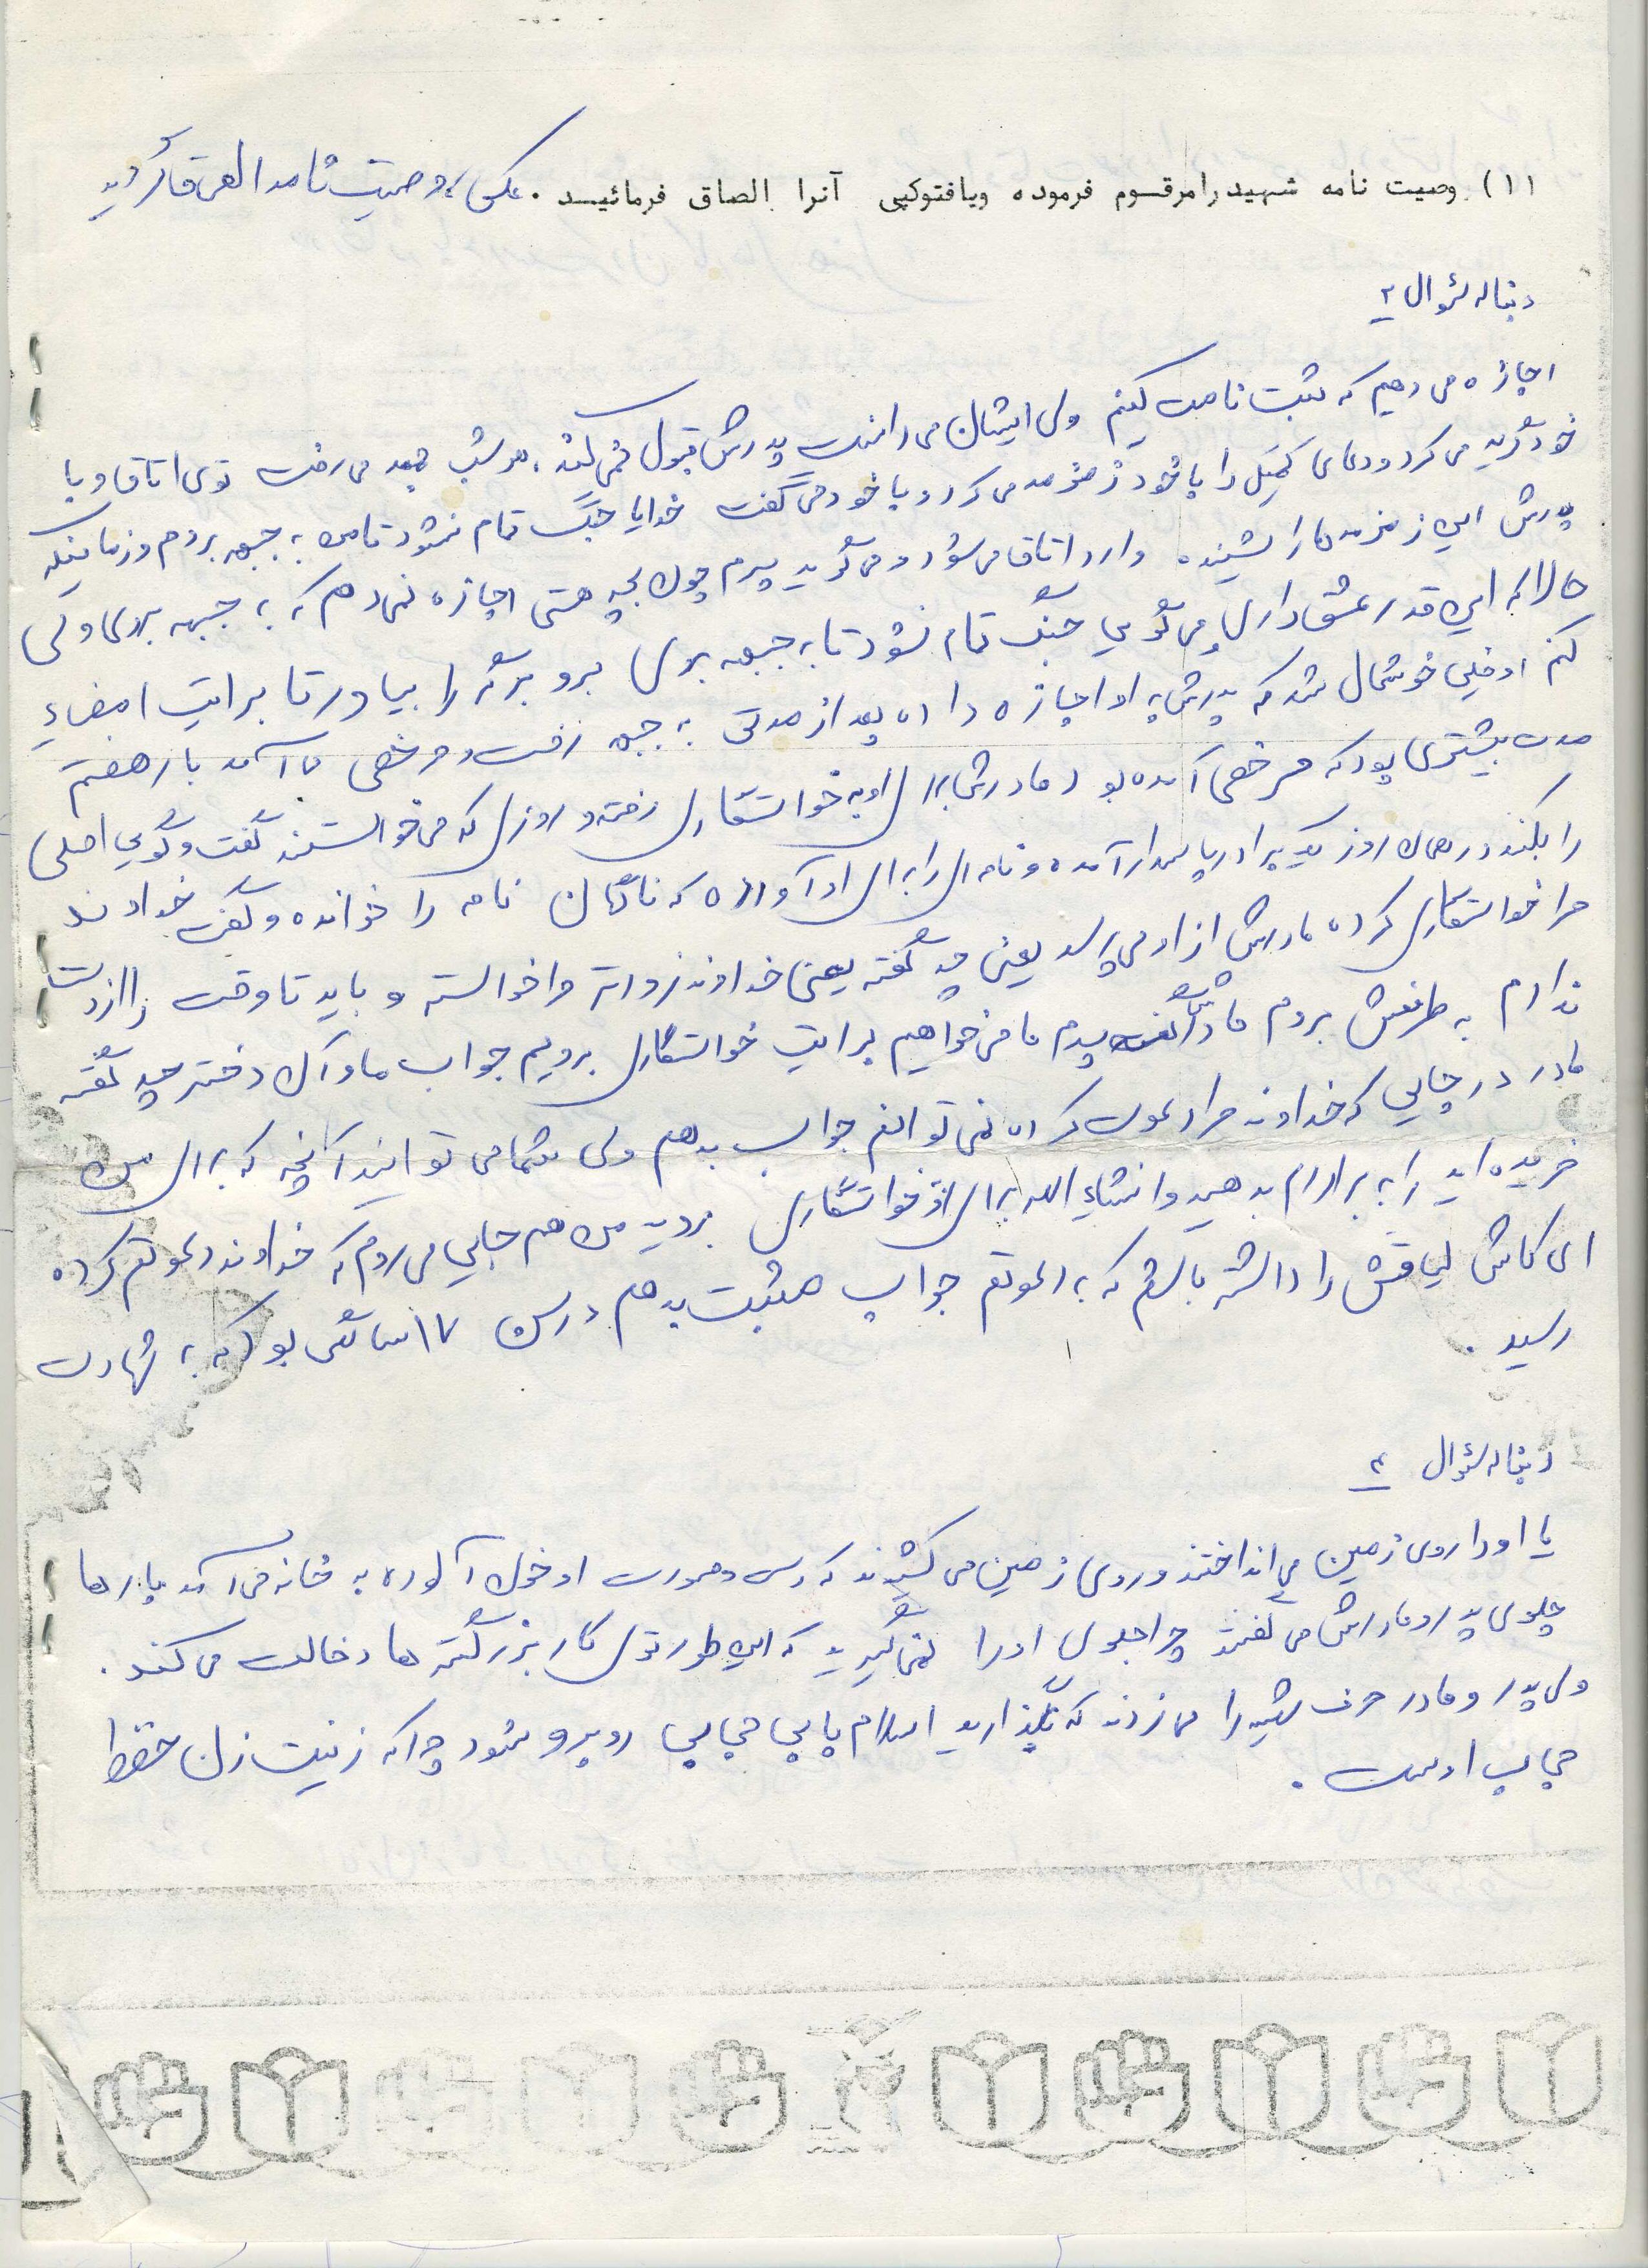 ۱۱) وصیت نامه شهید را مرقوم فرموده ویا فتوکپی آنرا الصاق فرمائید. عکس وصیت نامه الصاق گردید
دنباله سئوال ۲
اجازه می دهیم که ثبت نامت کنیم ولی ایشان می دانست پدرش قبول نمی کند. هر شب جمعه می رفت توی اتاق و با
خود گریه می کرد و دعای کمیل را با خود زمزمه می کرد و با خود می گفت خدایا جنگ تمام نشود تا من به جبهه بروم و زمانیکه
پدرش این زمزمه ها را شنیده وارد اتاق می شود و می گوید پسرم چون بچه هستی اجازه نمی دهم که به جبهه بروی ولی
حالا که این قدر عشق داری و می گویی جنگ تمام نشود تا به جبهه بروی برو برگه را بیاور تا برایت امضاء
کنم او خیلی خوشحال شد که پدرش به او اجازه داده بعد از مدتی به جبهه رفت و مرخصی ها آمد بار هفتم
مدت بیشتری بود که مرخصی آمده بود مادرش برای او به خواستگاری رفته و روزی که می خواستند گفت و گوی اصلی
را بکنند در همان روز یک برادر پاسدار آمده و نامه ای را برای او آورده که ناگهان نامه را خوانده و گفت خداوند
مرا خواستگاری کرده مادرش از او می پرسد یعنی چه گفته یعنی خداوند زودتر مرا خواسته و باید تا وقت را از دست
ندارم به طرفش بروم مادرش گفت پسرم ما می خواهیم برایت خواستگاری برویم جواب مادر آن دختر چه گفته
مادر در جایی که خداوند مرا دعوت کرده نمی توانم جواب بدهم ولی شما می توانید آنچه که برای من
خریده اید را به برادرم بدهید و انشاء الله برای او خواستگاری بروید من هم جایی می روم که خداوند دعوتم کرده
ای کاش لیاقتش را داشته باشم که به دعوتم جواب مثبت بدهم در سن ۱۷ سالگی بود که به شهادت
رسید.
دنباله سئوال ۴
یا او را روی زمین می انداختند و روی زمین می کشیدند که دست و صورت او خون آلوده به خانه می آمد بارها
جلوی پدر و مادرش می گفتند چرا جلوی او را نمی گیرید که این طور توی کار بزرگتر ها دخالت می کند.
ولی پدر و مادر حرف بشیر را می زدند که نگذارید اسلام با بی حجابی روبرو شود چرا که زینت زن حفظ
حجاب اوست.